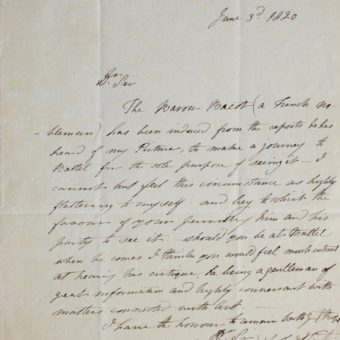 June 3d 1820
Dr Sir
The Baron Bacot (a French no
-bleman) has been induced from the reports he has
heard of my Picture, to make a journey to
Battel for the sole purpose of seeing it - I
cannot but feel this circumstance as highly
flattering to myself and beg to solicit the
favour of your permitting him and his
party to see it. should you be at Battel
when he comes I think you would feel much interest
at hearing his critique, he being a gentleman of
great information and highly conversant with
matters connected with Art.
I have the honour to remain with